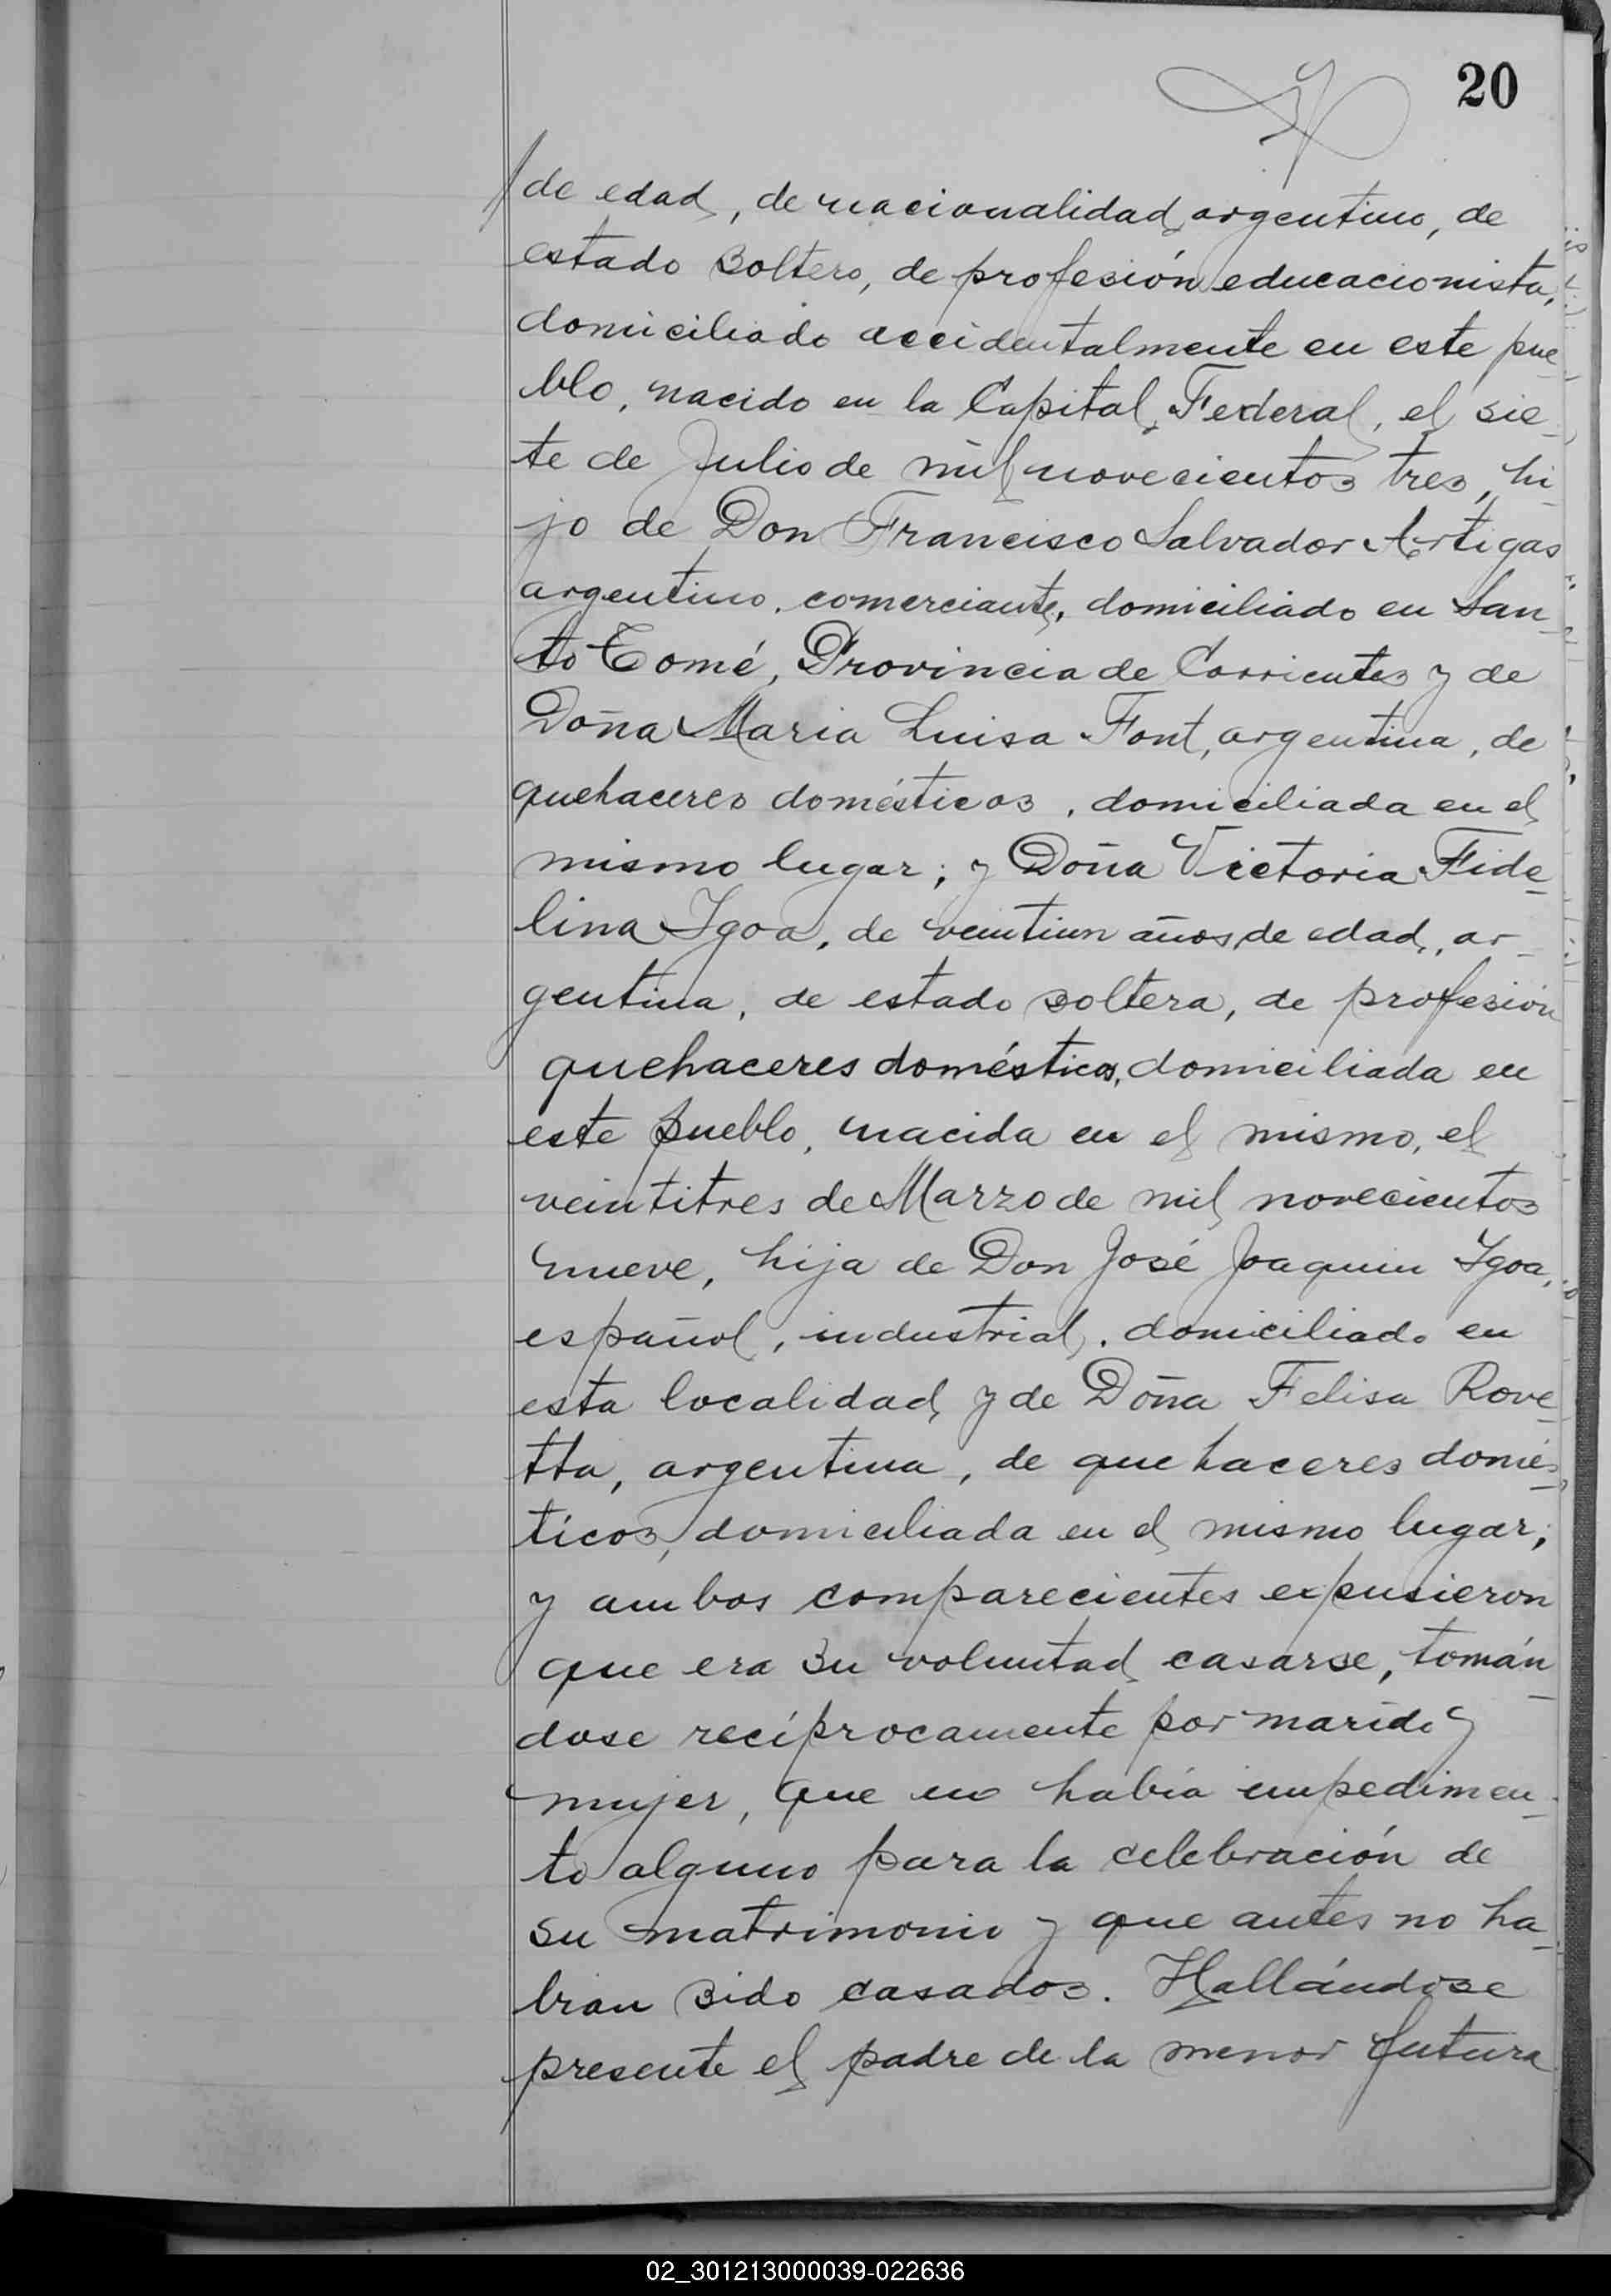 20
de edad, de nacionalidad argentino, de
estado soltero, de profesión educacionista,
domiciliado accidentalmente en este pue
blo, nacido en la Capital Federal, el sie-
te de Julio de mil novecientos tres, hi-
jo de Don Francisco Salvador Artigas
argentino, comerciante, domiciliado en San-
to Tomé, Provincia de Corrientes y de
Doña Maria Luisa Font, argentina, de
quehaceres domésticos, domiciliada en el
mismo lugar; y Doña Victoria Fide-
lina Igoa, de veintiun años de edad, ar-
gentina, de estado soltera, de profesión
quehaceres domésticos, domiciliada en
este pueblo, nacida en el mismo, el
veintitres de Marzo de mil novecientos
nueve, hija de Don José Joaquin Igoa,
español, industrial, domiciliado en
esta localidad y de Doña Felisa Rove-
tta, argentina, de quehaceres domés-
ticos, domiciliada en el mismo lugar;
y ambos comparecientes expusieron
que era su voluntad casarse, tomán-
dose recíprocamente por marido y
mujer, que no había impedimen-
to alguno para la celebración de
su matrimonio y que antes no ha-
bian sido casados. Hallándose
presente el padre de la menor futura
02_301213000039-022636